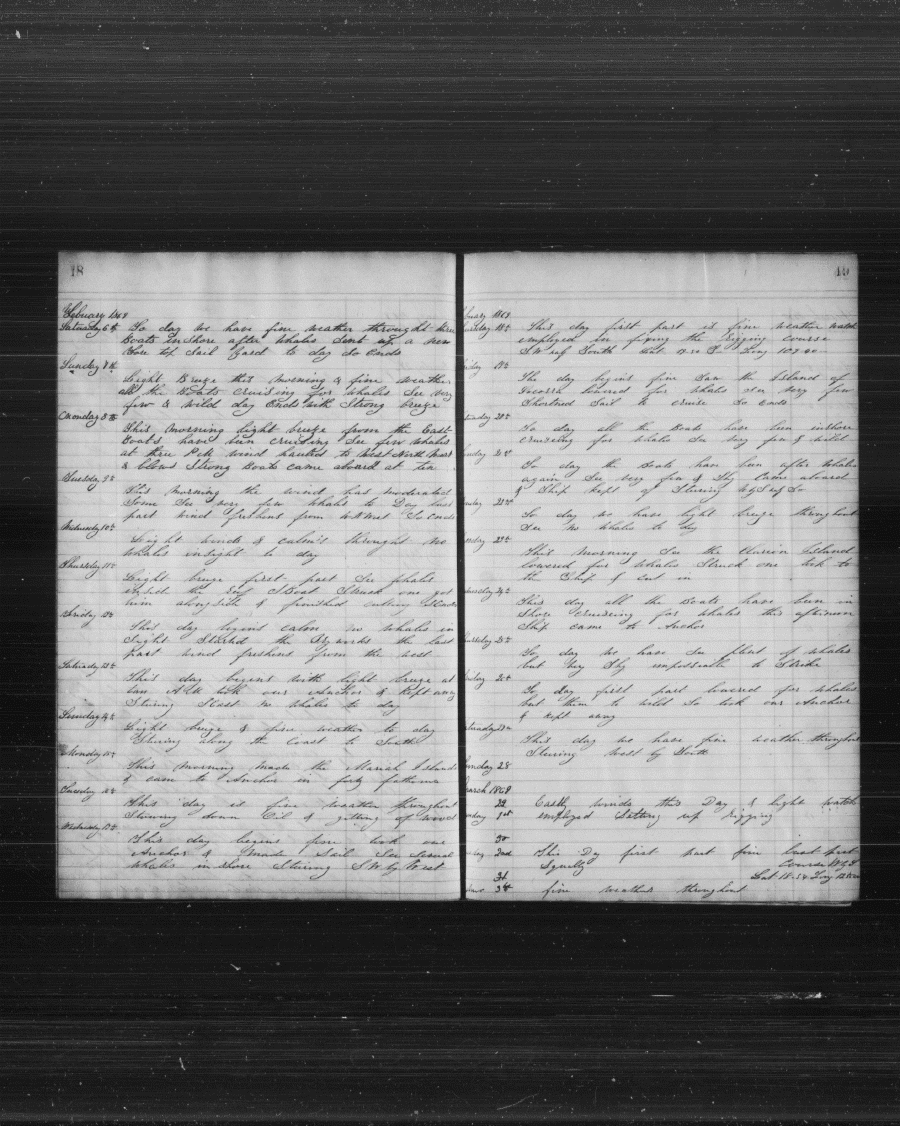 18
February 1869
Saturday 6th To day we have fine weather throught thru
Boats inshore after whales Sent up a new
Fore top Sail Yard to day So Ends
Sunday 7th
Light Breeze this morning & fine weather
all the Boats cruising for whales See very
few & wild day Ends with Strong breeze
Monday 8th
This morning light breeze from the East
Boats have bin cruising See few whales
at three Pm wind hauled to West North West
& blows Strong Boats came aboard at tea
Tuesday 9th
This morning the wind has moderated
Some See very few whales to Day last
part wind freshens from WNWest So Ends
Wednesday 10th
Light winds & calm's throught no
whales insight to day
Thursday 11th
Light breeze first part See whales
the Boat Struck one got
him alongside & finished cutting
Friday 12th
This day begins calm no whales in
Sight Started the Try works the last
part wind freshens from the west
Saturday 13th
This day begins with light breeze at
took our Anchor & kept away
Stiring no whales to day
Sunday 14th
Light breeze & fine weather to day
Stiring along the Coast to South
Monday 15th
This morning made the Islands
& came to Anchor in forty fathoms
Tuesday 16th
This day is fine weather throughout
Stowing down Oil & getting of wood
Wednesday 17th
This day begins fine took our
Anchor & made Sail See Several
whales in shore Stiring S W by West
19
1869
18th This day first part is fine weather watch
employed in fixing the Rigging course
S W South Lat Long 109
19th
The day begins fine Saw the Island of
lowered for whales See very few
Shortned Sail to cruise So ends
20th
To day all the Boats have bin inshore
cruiseing for whales See very few & wild
21st
To day the Boats have bin after Whales
again See very few & Shy Came aboard
& Ship kept of Stiring
22nd
To day we have light breeze throughout
See no whales to day
23rd
This Morning See the Clarion Island
lowered for whales Struck one took to
the Ship & cut in
24th
This day all the Boats have bin in
Shore cruiseing for whales this afternoon
Ship came to Anchor
25th
To day we have See plent of whales
but very Shy impossable to Strike
26th
To day first part lowered for whales
but them to wild So took our Anchor
& kept away
This day we have fine weather throughout
Stiring West by South
28
March 1869
Eastly winds this Day & light watch
1st employed Setting up rigging
30
2nd This Day first part fine last part
Squally Course
31 Lat 18.54 Long
3rd fine weather throughout